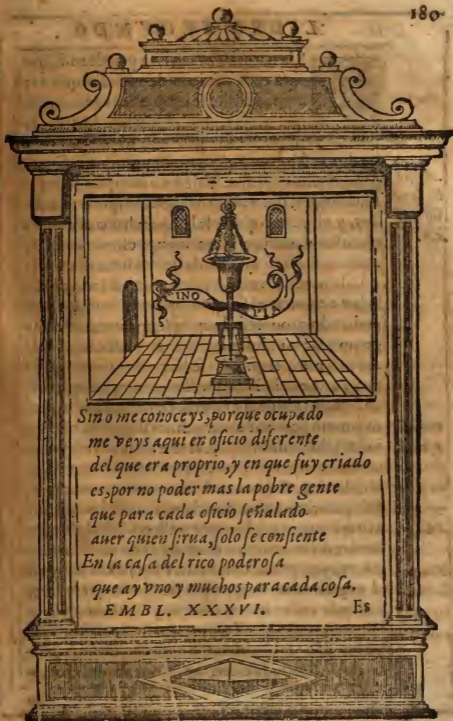 180
INO PIA
Sino me conoceys, porque ocupado
me veys aqui en oficio diferente
del que era proprio, y en que fuy criado
es, por no poder mas la pobre gente
que para cada oficio ſeñalado
auer quien ſirua, ſolo ſe conſiente
En la caſa del rico poderoſa
que ay vno y muchos para cada coſa.
EMBL. XXXVI. Es